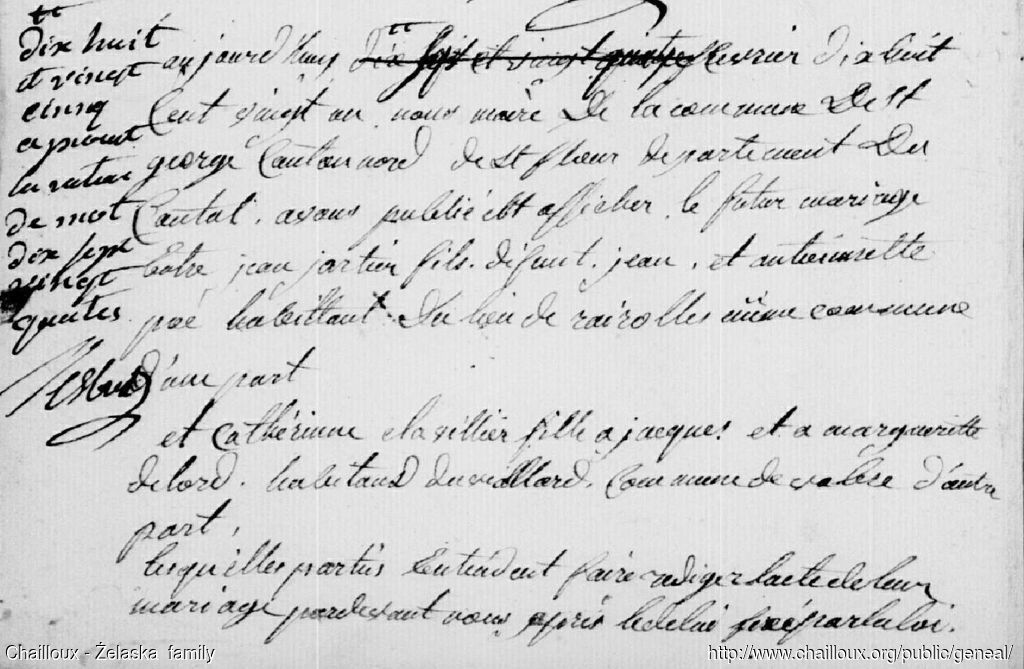 dix huit
et vingt
cinq
aprouvé
la rature
de mot
dix sept
vingt
quatre
aujourd'huy dix sept et vingt quatre fevrier dix huit
Cent vingt un nous maire De la commune De St
george Canton nord de St flour departement Du
Cantal. avons publié et afficher le futur mariage
Entre jean jartier fils. difunt. jean, et antoinette
poé habittant Du lieu de rairolles même commune
D'une part
et Cathérinne clavillier fille a jacques et a margueritte
delord. habitand du viallard. Commune de valése D'autre
part,
lesquelles partis Entendent faire rediger lacte de leur
mariage pardevant nous après le delai fixé par la loi.
Chailloux - Żelaska family
http://www.chailloux.org/public/geneal/